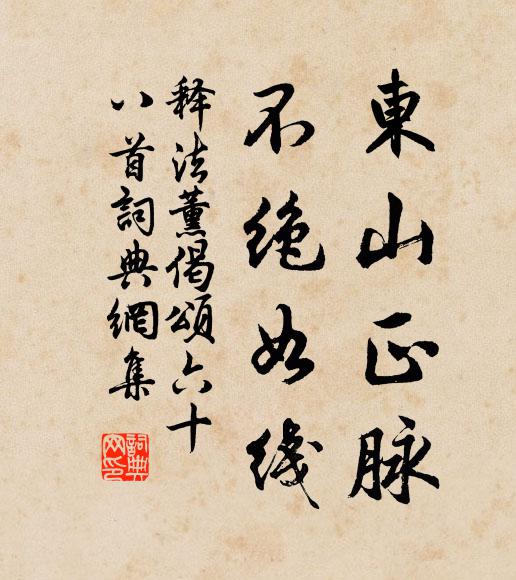 東山正脉
不绝如线
释法薰偈頌六十
八首詞典網集
詞典网印